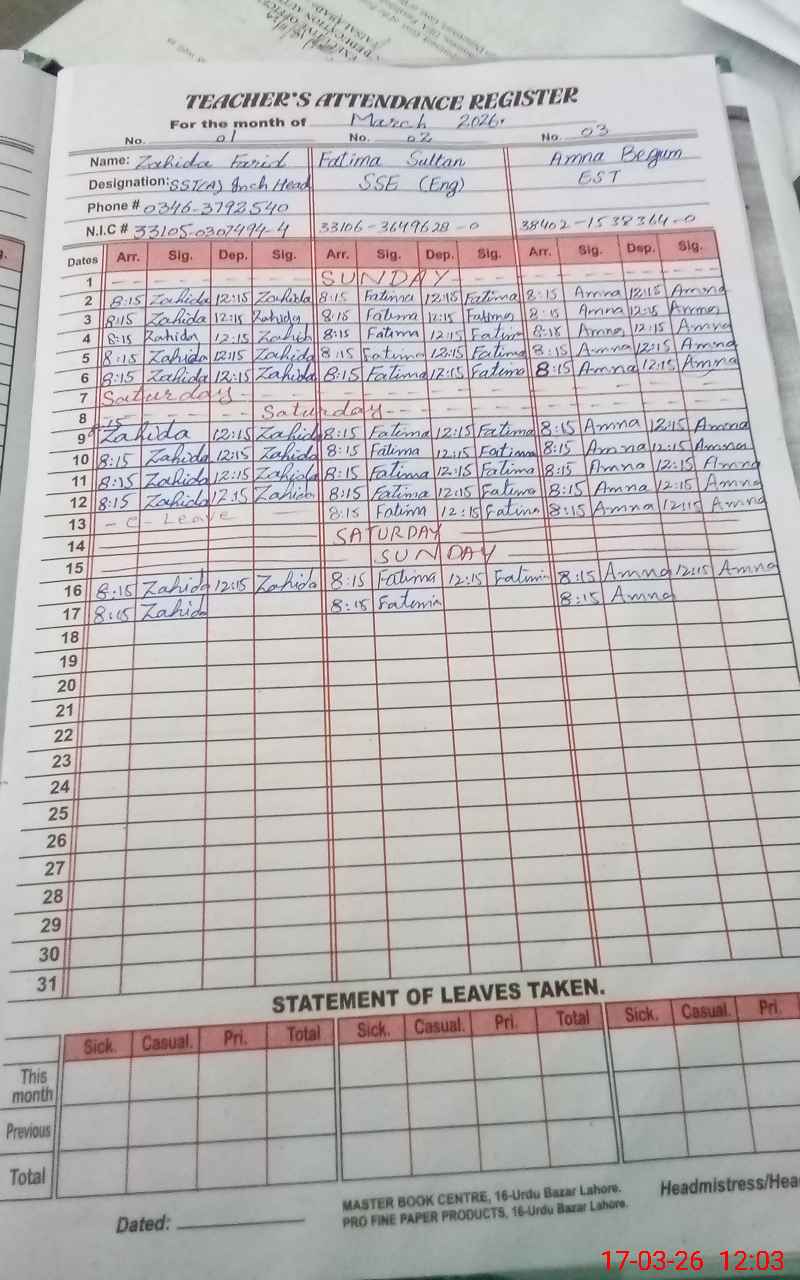 TEACHER'S ATTENDANCE REGISTER
For the month of March 2026.
No. 01 No. 02 No. 03
Name: Zahida Farid Fatima Sultan Amna Begum
Designation: SST(A) Inch Head SSE (Eng) EST
Phone # 0346-3792540
N.I.C # 33105-0307494-4 33106-3649628-0 38402-1538364-0
Dates Arr. Sig. Dep. Sig. Arr. Sig. Dep. Sig. Arr. Sig. Dep. Sig.
1 SUNDAY
2 8:15 Zahida 12:15 Zahida 8:15 Fatima 12:15 Fatima 8:15 Amna 12:15 Amna
3 8:15 Zahida 12:15 Zahida 8:15 Fatima 12:15 Fatima 8:15 Amna 12:15 Amna
4 8:15 Zahida 12:15 Zahida 8:15 Fatima 12:15 Fatima 8:15 Amna 12:15 Amna
5 8:15 Zahida 12:15 Zahida 8:15 Fatima 12:15 Fatima 8:15 Amna 12:15 Amna
6 8:15 Zahida 12:15 Zahida 8:15 Fatima 12:15 Fatima 8:15 Amna 12:15 Amna
7 Saturday
8 Saturday
9 8:15 Zahida 12:15 Zahida 8:15 Fatima 12:15 Fatima 8:15 Amna 12:15 Amna
10 8:15 Zahida 12:15 Zahida 8:15 Fatima 12:15 Fatima 8:15 Amna 12:15 Amna
11 8:15 Zahida 12:15 Zahida 8:15 Fatima 12:15 Fatima 8:15 Amna 12:15 Amna
12 8:15 Zahida 12:15 Zahida 8:15 Fatima 12:15 Fatima 8:15 Amna 12:15 Amna
13 - e - Leave 8:15 Fatima 12:15 Fatima 8:15 Amna 12:15 Amna
14 SATURDAY
15 SUNDAY
16 8:15 Zahida 12:15 Zahida 8:15 Fatima 12:15 Fatima 8:15 Amna 12:15 Amna
17 8:15 Zahida 8:15 Fatima 8:15 Amna
18
19
20
21
22
23
24
25
26
27
28
29
30
31
STATEMENT OF LEAVES TAKEN.
Sick. Casual. Pri. Total Sick. Casual. Pri. Total Sick. Casual. Pri.
This month
Previous
Total
Dated:
MASTER BOOK CENTRE, 16-Urdu Bazar Lahore.
PRO FINE PAPER PRODUCTS, 16-Urdu Bazar Lahore.
Headmistress/Hea
17-03-26 12:03